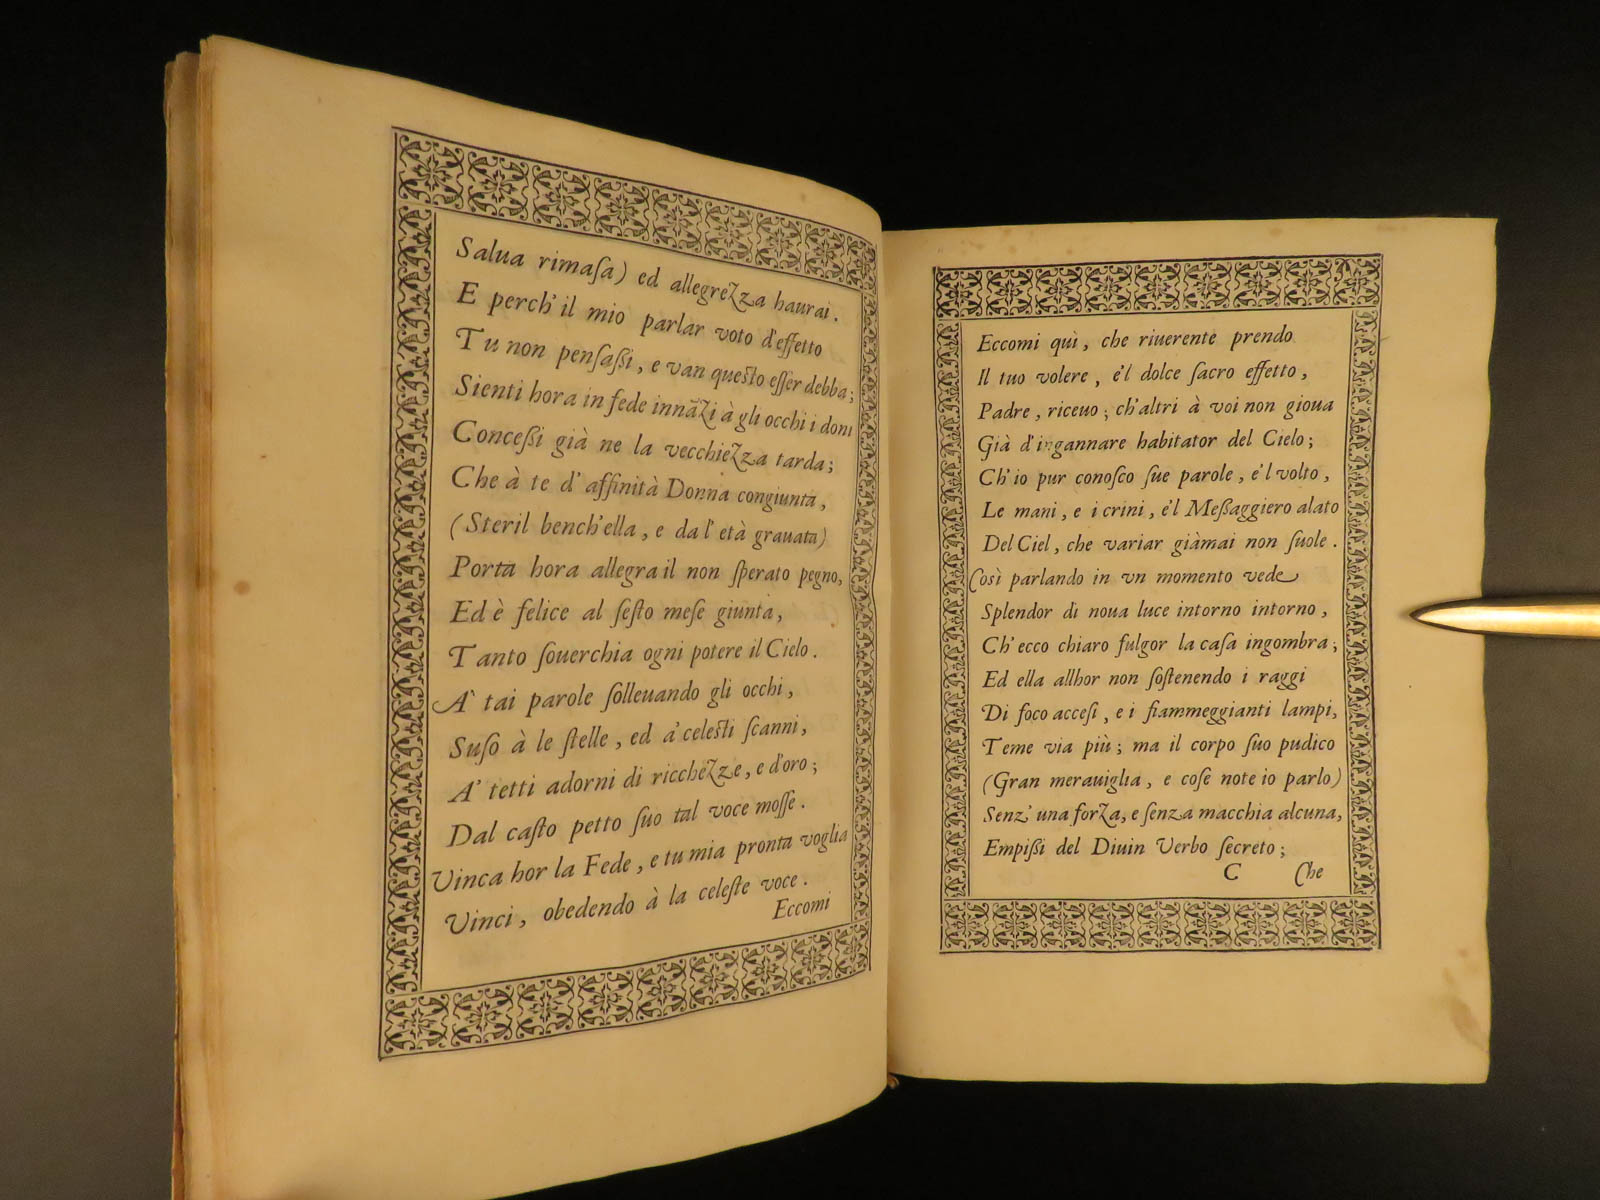 Salua rimaſa) ed allegrezza haurai.
E perch' il mio parlar voto d'effetto
Tu non penſaßi, e van questo eſſer debba;
Sienti hora in fede innãzi à gli occhi i doni
Conceßi già ne la vecchiezza tarda;
Che à te d' affinità Donna congiunta,
(Steril bench'ella, e da l' età grauata)
Porta hora allegra il non ſperato pegno,
Ed è felice al ſeſto meſe giunta,
Tanto ſouerchia ogni potere il Cielo.
A' tai parole ſolleuando gli occhi,
Suſo à le ſtelle, ed a' celesti ſcanni,
A' tetti adorni di ricchezze, e d'oro;
Dal caſto petto ſuo tal voce moſſe.
Vinca hor la Fede, e tu mia pronta voglia
Vinci, obedendo à la celeſte voce.
Eccomi
Eccomi quì, che riuerente prendo
Il tuo volere, e'l dolce ſacro effetto,
Padre, riceuo; ch'altri à voi non gioua
Già d'ingannare habitator del Cielo;
Ch' io pur conoſco ſue parole, e'l volto,
Le mani, e i crini, e'l Meßaggiero alato
Del Ciel, che variar giàmai non ſuole.
Così parlando in vn momento vede
Splendor di noua luce intorno intorno,
Ch' ecco chiaro fulgor la caſa ingombra;
Ed ella allhor non ſoſtenendo i raggi
Di foco acceſi, e i fiammeggianti lampi,
Teme via più; ma il corpo ſuo pudico
(Gran merauiglia, e coſe note io parlo)
Senz' una forza, e ſenza macchia alcuna,
Empißi del Diuin Verbo ſecreto;
C Che